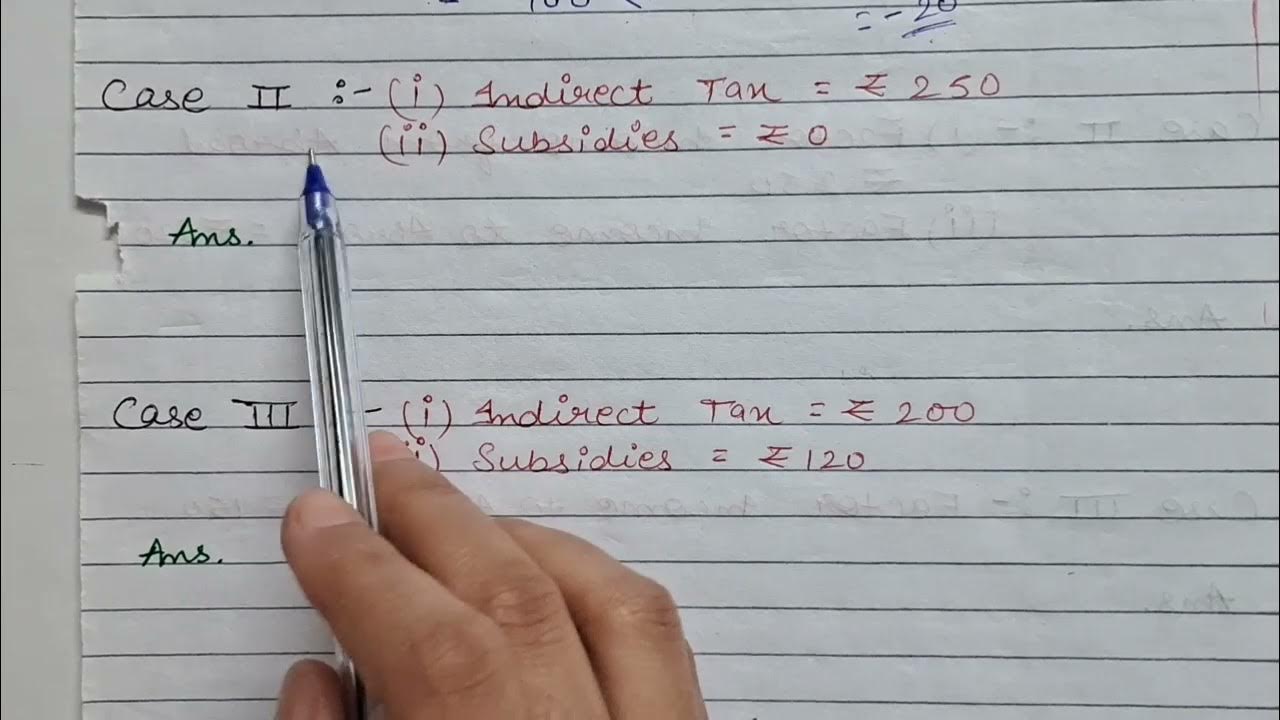 = -20
Case II :- (i) Indirect Tax = ₹ 250
(ii) Subsidies = ₹ 0
Ans.
Case III - (i) Indirect Tax = ₹ 200
ii) Subsidies = ₹ 120
Ans.